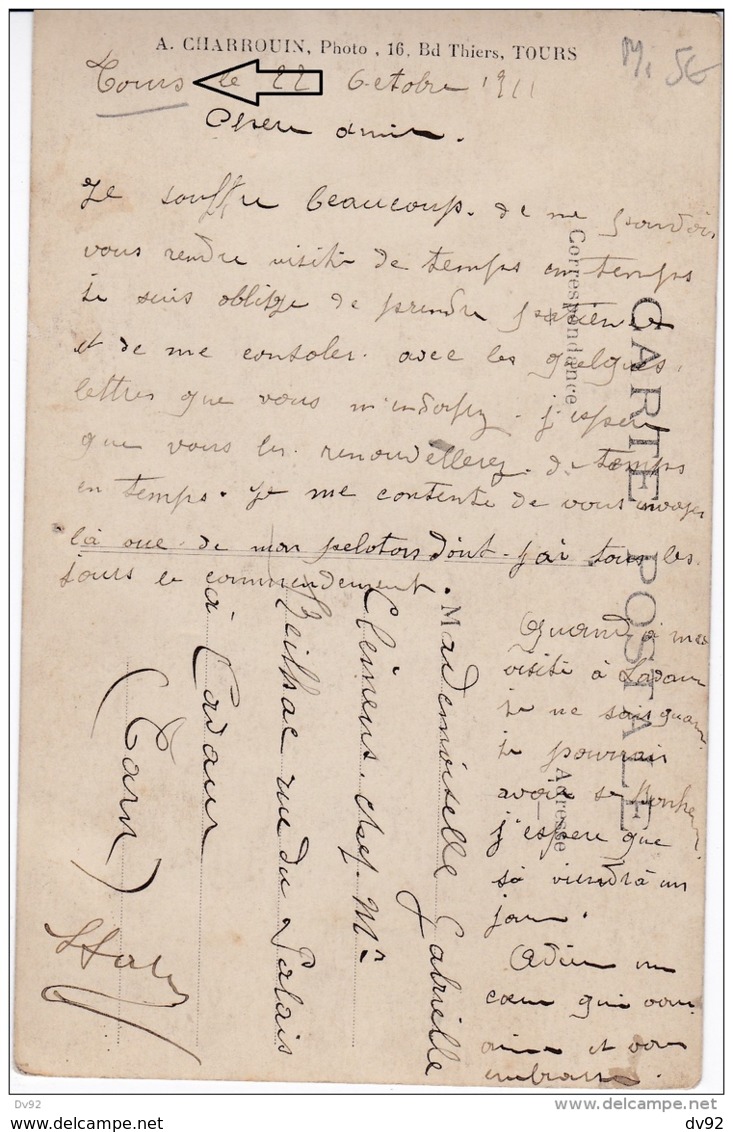 A. CHARROUIN, Photo, 16, Bd Thiers, TOURS
Tours le 22 Octobre 1911
Chere amie.
Je souffre beaucoup. de ne pouvoir
vous rendre visite de temps en temps
je suis oblige de prendre patience
et de me consoler. avec les quelques
lettres que vous
que vous les. renouvellerez. de temps
en temps. Je me contente de vous envoyer
la vue de mon peloton dont j'ai tous les
jours le commendement.
Quand à ma
visite à Lavaur
je ne sais quand
je pourrai
avoir se Bonheur
j'espere que
sa viendra un
jour.
Adieu un
cœur qui vous
aime et vous
embrasse.
CARTE POSTALE
Correspondance
Adresse
Mademoiselle Gabrielle
Clémens. chef. Mr
rue du Palais
à Lavaur
(Tarn)
M. 5€
Dv92
delcampe.net
dv92